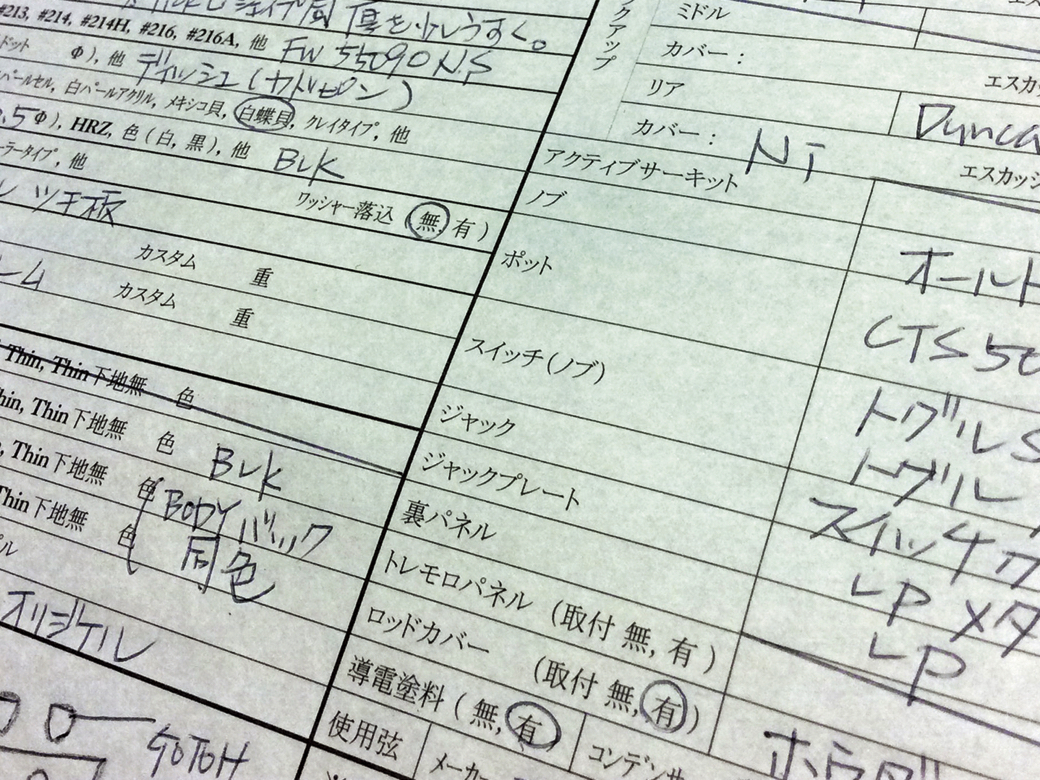 傷を少しうすく。
#213, #214, #214H, #216, #216A, 他 FW 55090 NS
ドット Φ), 他 ディッシュ(カドピン)
パールセル, 白パールアクリル, メキシコ貝, 白蝶貝, クレイタイプ, 他
0.5Φ), HRZ, 色 (白, 黒), 他 BLK
ラータイプ, 他
ワッシャー落込 (無, 有)
ツキ板
カスタム 重
カスタム 重
Thin, Thin下地無 色
hin, Thin下地無 色 BLK
, Thin下地無 色 BODY バック
Thin下地無 色 同色
オリジナル
GOTOH
クアップ
ミドル
カバー: エスカ
リア Dunca
カバー: NI エスカッシ
アクティブサーキット
ノブ オールド
ポット CTS 50
スイッチ(ノブ) トグルS
トグル
ジャック スイッチク
ジャックプレート LP メタ
裏パネル LP
トレモロパネル (取付 無, 有)
ロッドカバー (取付 無, 有)
導電塗料 (無, 有)
使用弦 メーカー コンデンサ